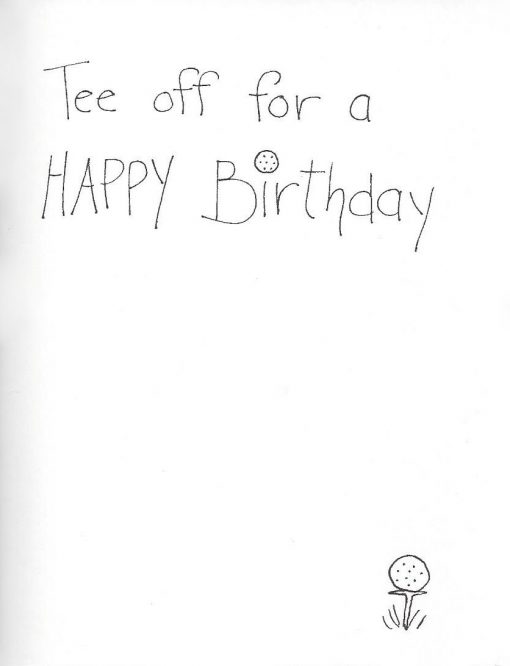 Tee off for a
HAPPY Birthday